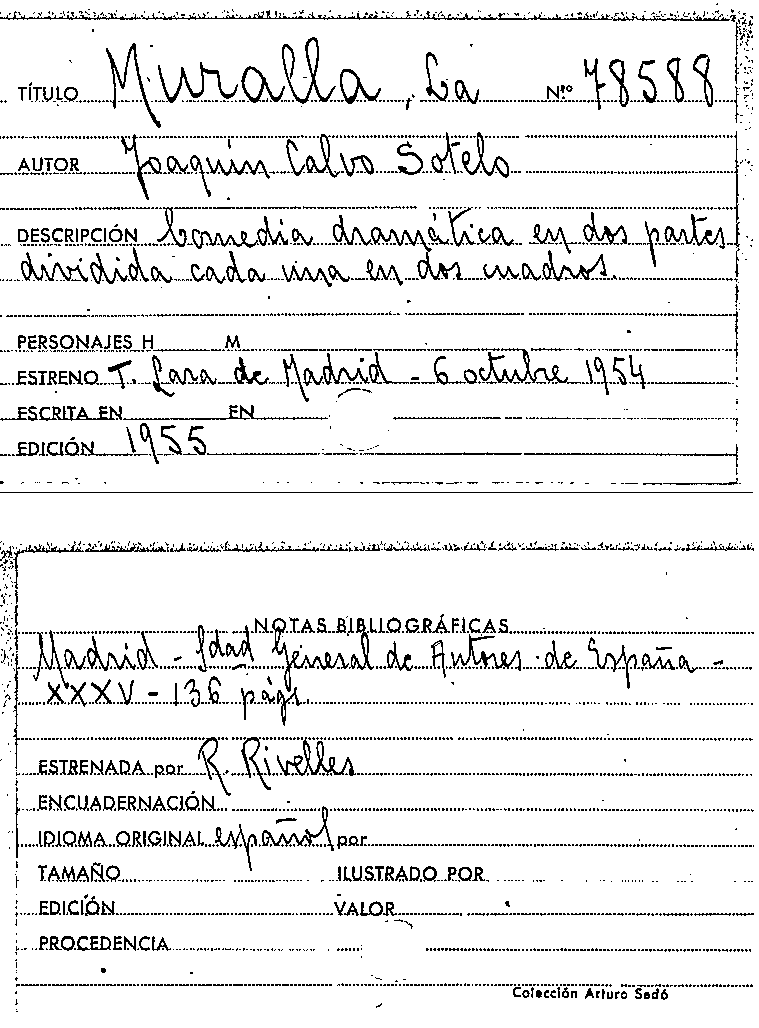 TÍTULO Muralla, La Nº 78588
AUTOR Joaquín Calvo Sotelo
DESCRIPCIÓN Comedia dramática en dos partes
dividida cada una en dos cuadros.
PERSONAJES H M
ESTRENO T. Lara de Madrid - 6 octubre 1954
ESCRITA EN EN
EDICIÓN 1955
NOTAS BIBLIOGRÁFICAS
Madrid - Sdad General de Autores de España -
XXXV - 136 págs.
ESTRENADA por R. Rivelles
ENCUADERNACIÓN
IDIOMA ORIGINAL español por
TAMAÑO ILUSTRADO POR
EDICIÓN VALOR
PROCEDENCIA
Colección Arturo Sedó